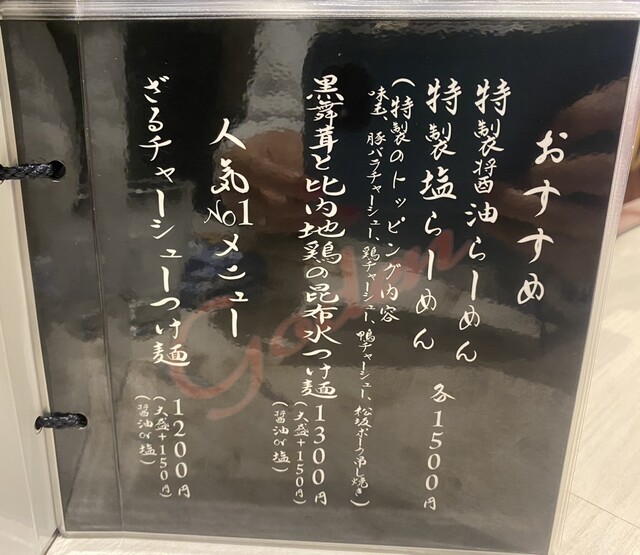 おすすめ
特製醤油らーめん
特製塩らーめん
各1500円
(特製のトッピング内容
味玉、豚バラチャーシュー、鶏チャーシュー、鴨チャーシュー、松坂ポーク吊し焼き)
黒舞茸と比内地鶏の昆布水つけ麺
1300円
(大盛+150円)
(醤油or塩)
人気No1メニュー
ざるチャーシューつけ麺
1200円
(大盛+150円)
(醤油or塩)